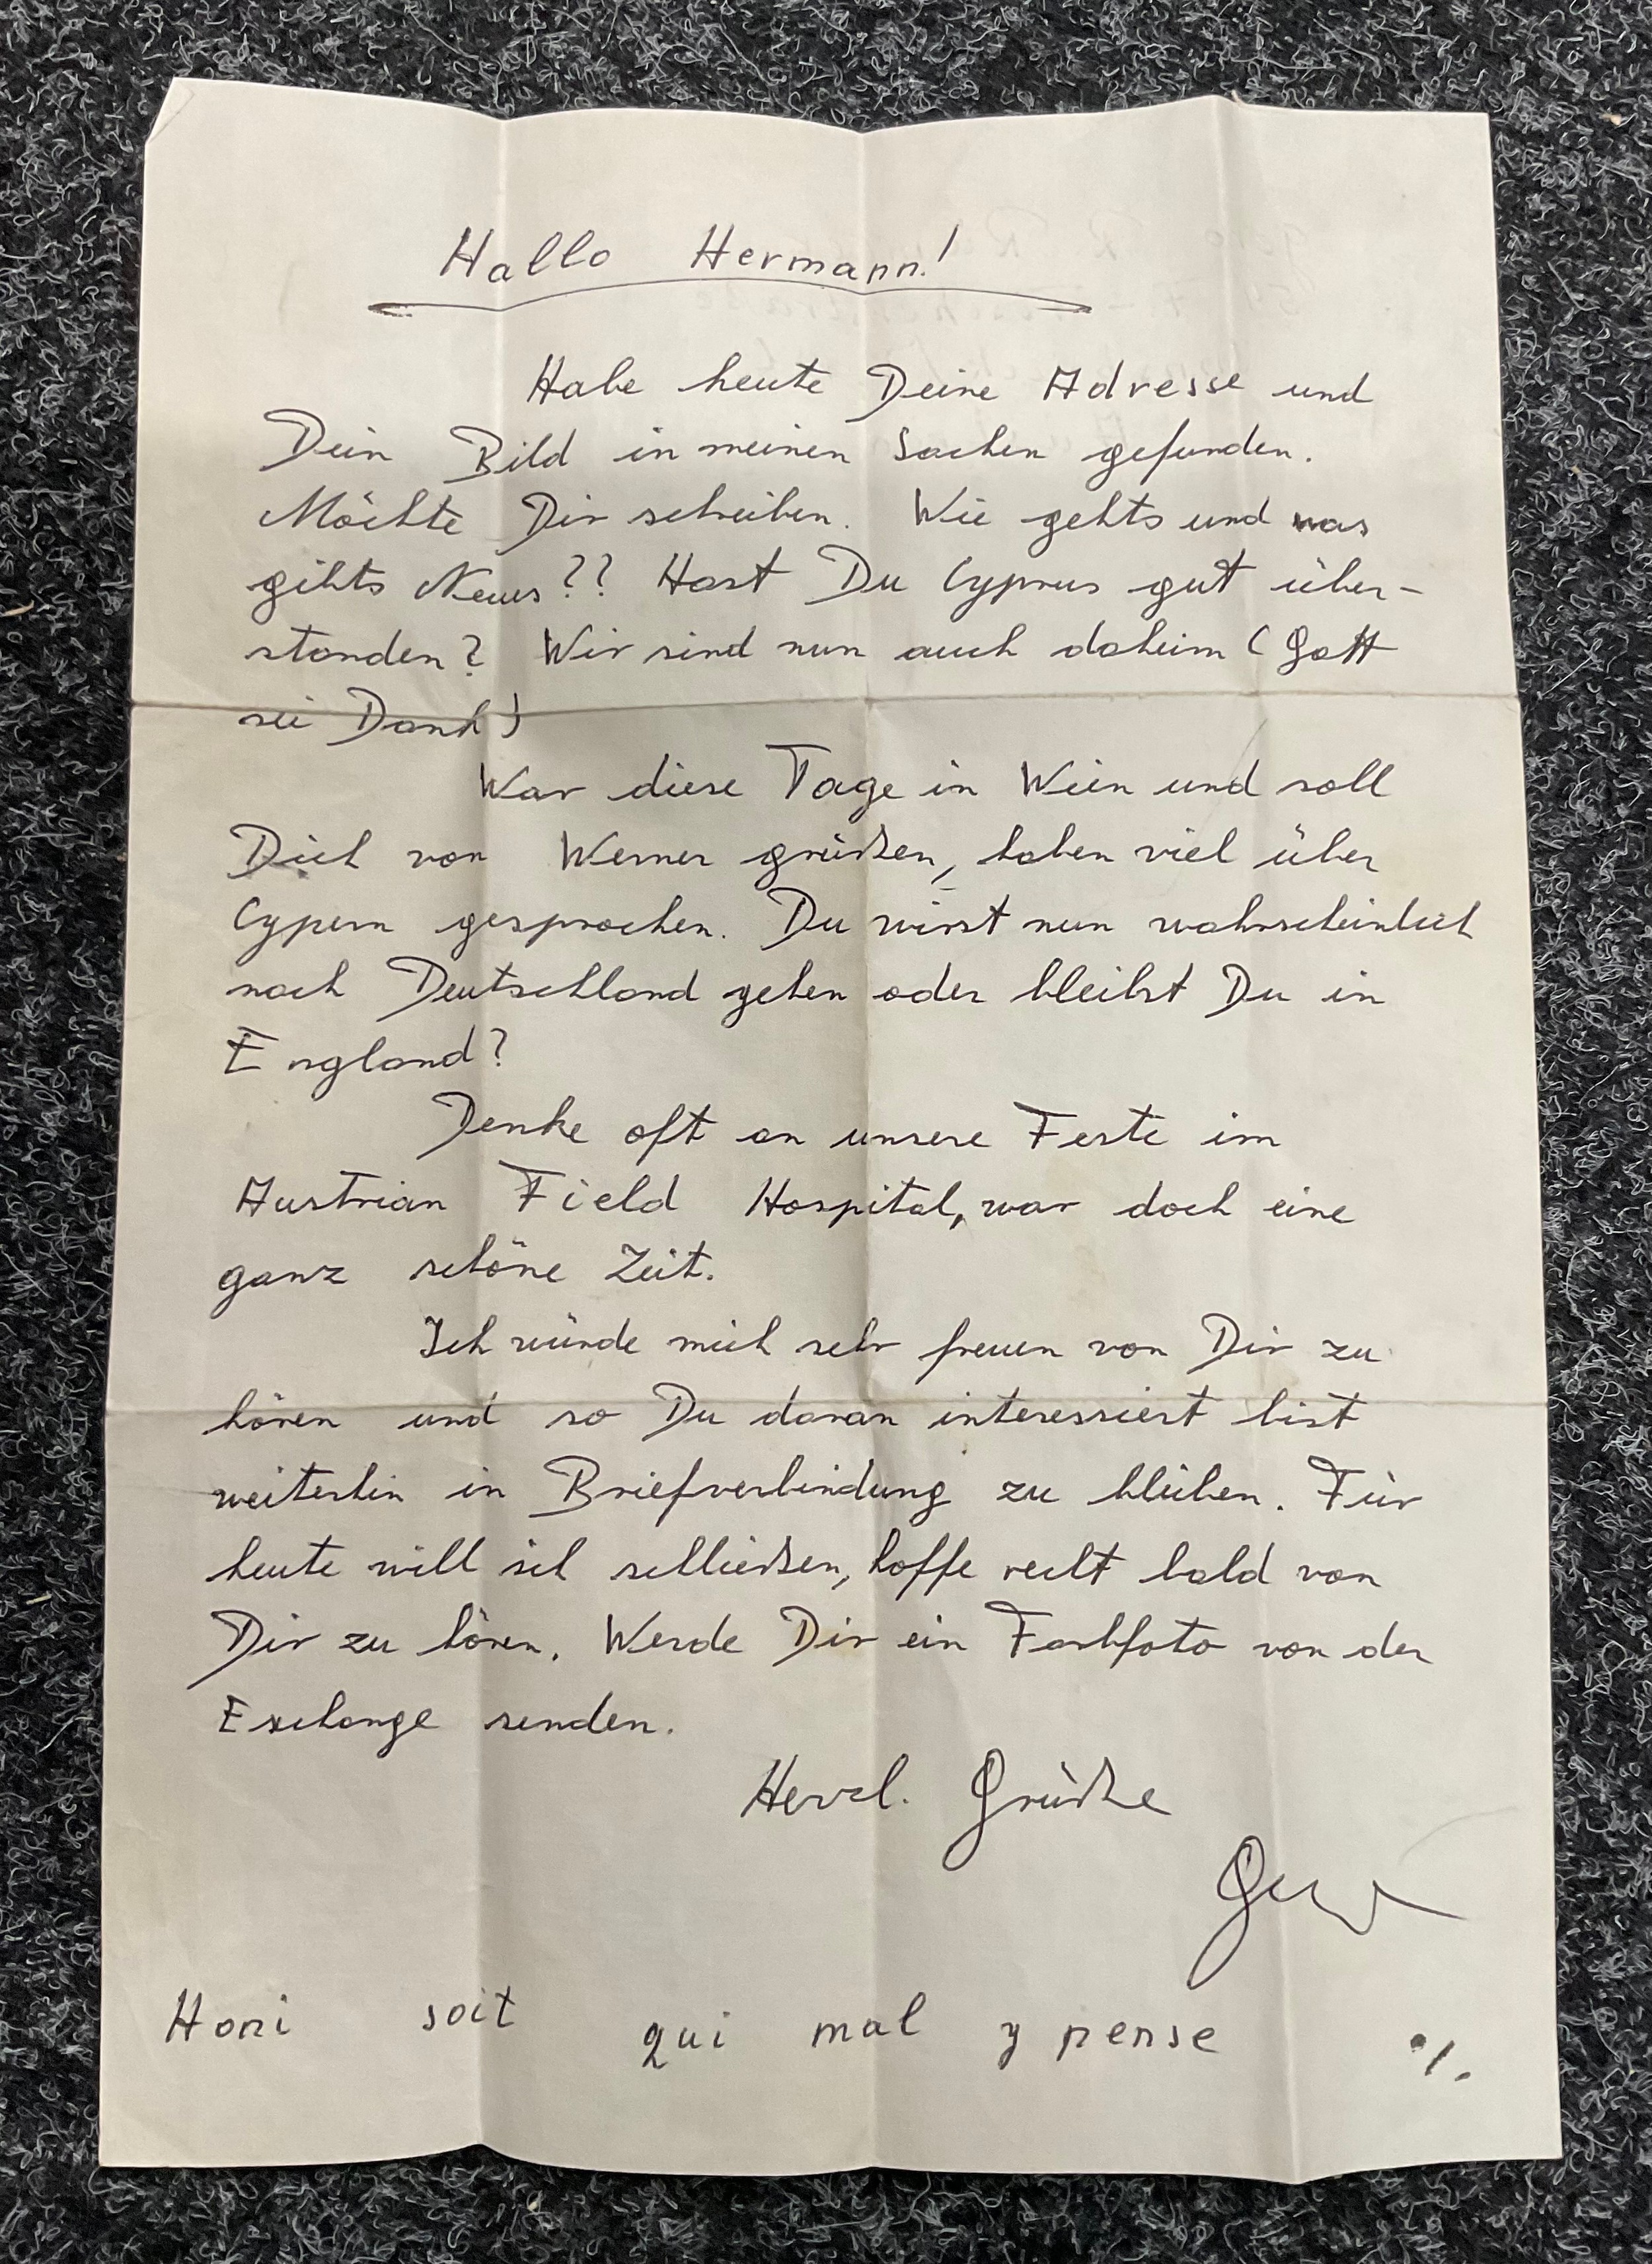 Hallo Hermann!
Habe heute Deine Adresse und
Dein Bild in meinen Sachen gefunden.
Möchte Dir schreiben. Wie gehts und was
gibts Neues?? Hast Du Cyprus gut über-
standen? Wir sind nun auch daheim (Gott
sei Dank)
War diese Tage in Wien und soll
Dich von Werner grüßen, haben viel über
Cypern gesprochen. Du wirst nun wahrscheinlich
nach Deutschland gehen oder bleibst Du in
England?
Denke oft an unsere Feste im
Austrian Field Hospital, war doch eine
ganz schöne Zeit.
Ich würde mich sehr freuen von Dir zu
hören und so Du daran interessiert bist
weiterhin in Briefverbindung zu bleiben. Für
heute will ich schließen, hoffe recht bald von
Dir zu hören. Werde Dir ein Farbfoto von der
Exchange senden.
Herzl. Grüße
Honi soit qui mal y pense ./.